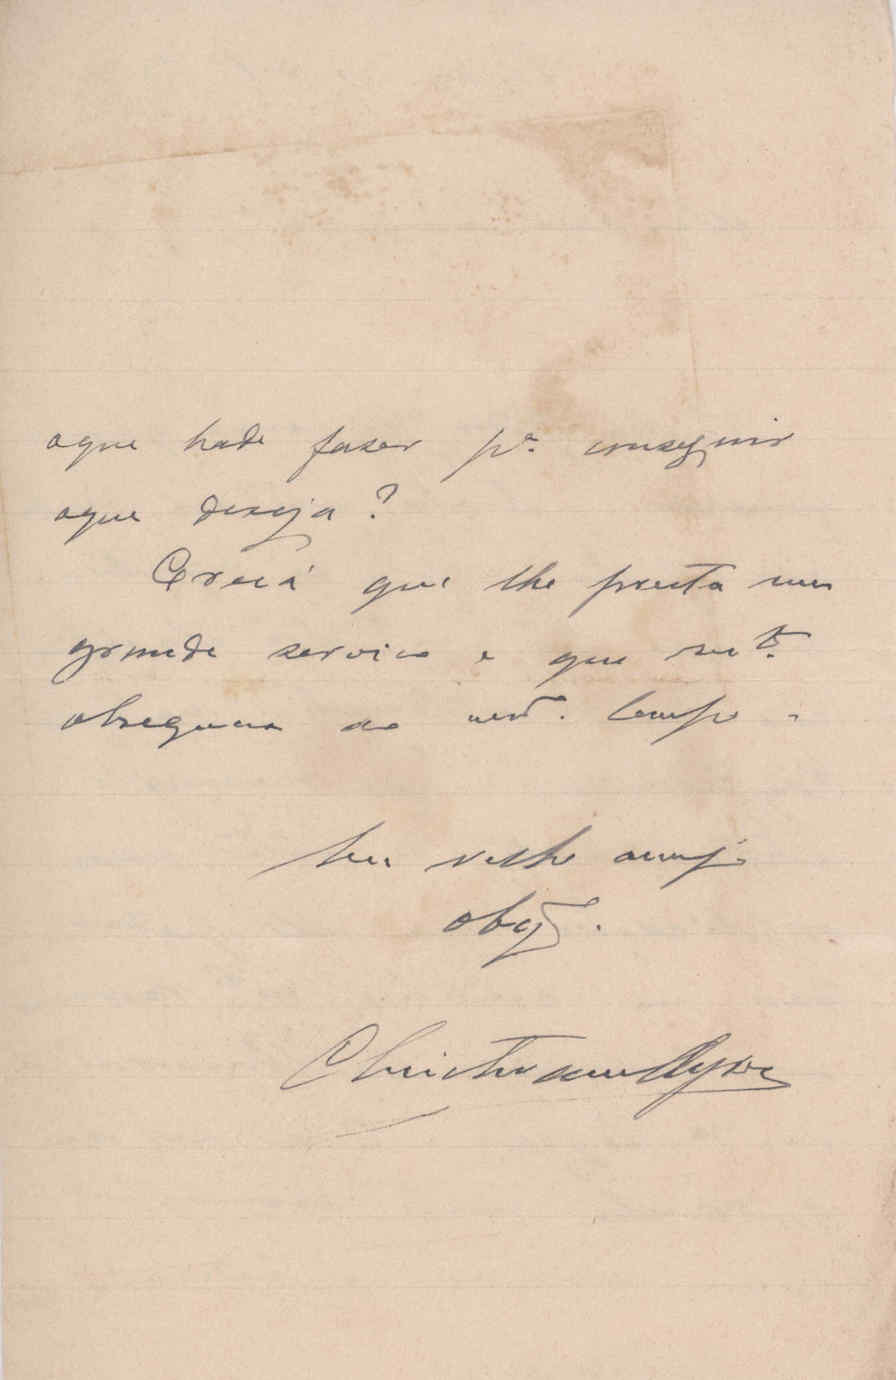 aque hade faser pª. conseguir
aque deseja?
Creia que lhe presta um
grande serviço e que mtº.
obsequeia ao mmº. tempo.
Seu velho amigo
obgº.
Christovam Ayres